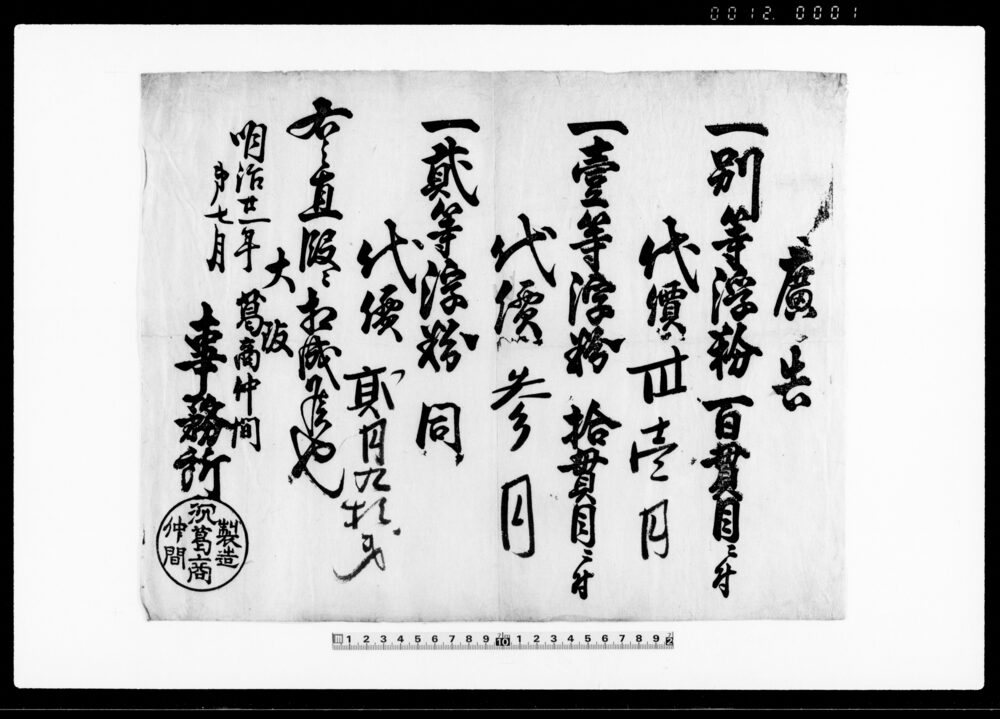 0012 0001
廣告
一別等浮粉 百貫目ニ付
代價 卅壱円
一壹等浮粉 拾貫目ニ付
代價 参円
一貳等浮粉 同
代價 貳円九拾銭
右之直段ニ相成候也
明治廿一年
第七月
大阪
葛商仲間
事務所
製造
沉葛商
仲間
1 2 3 4 5 6 7 8 9 10 1 2 3 4 5 6 7 8 9 2